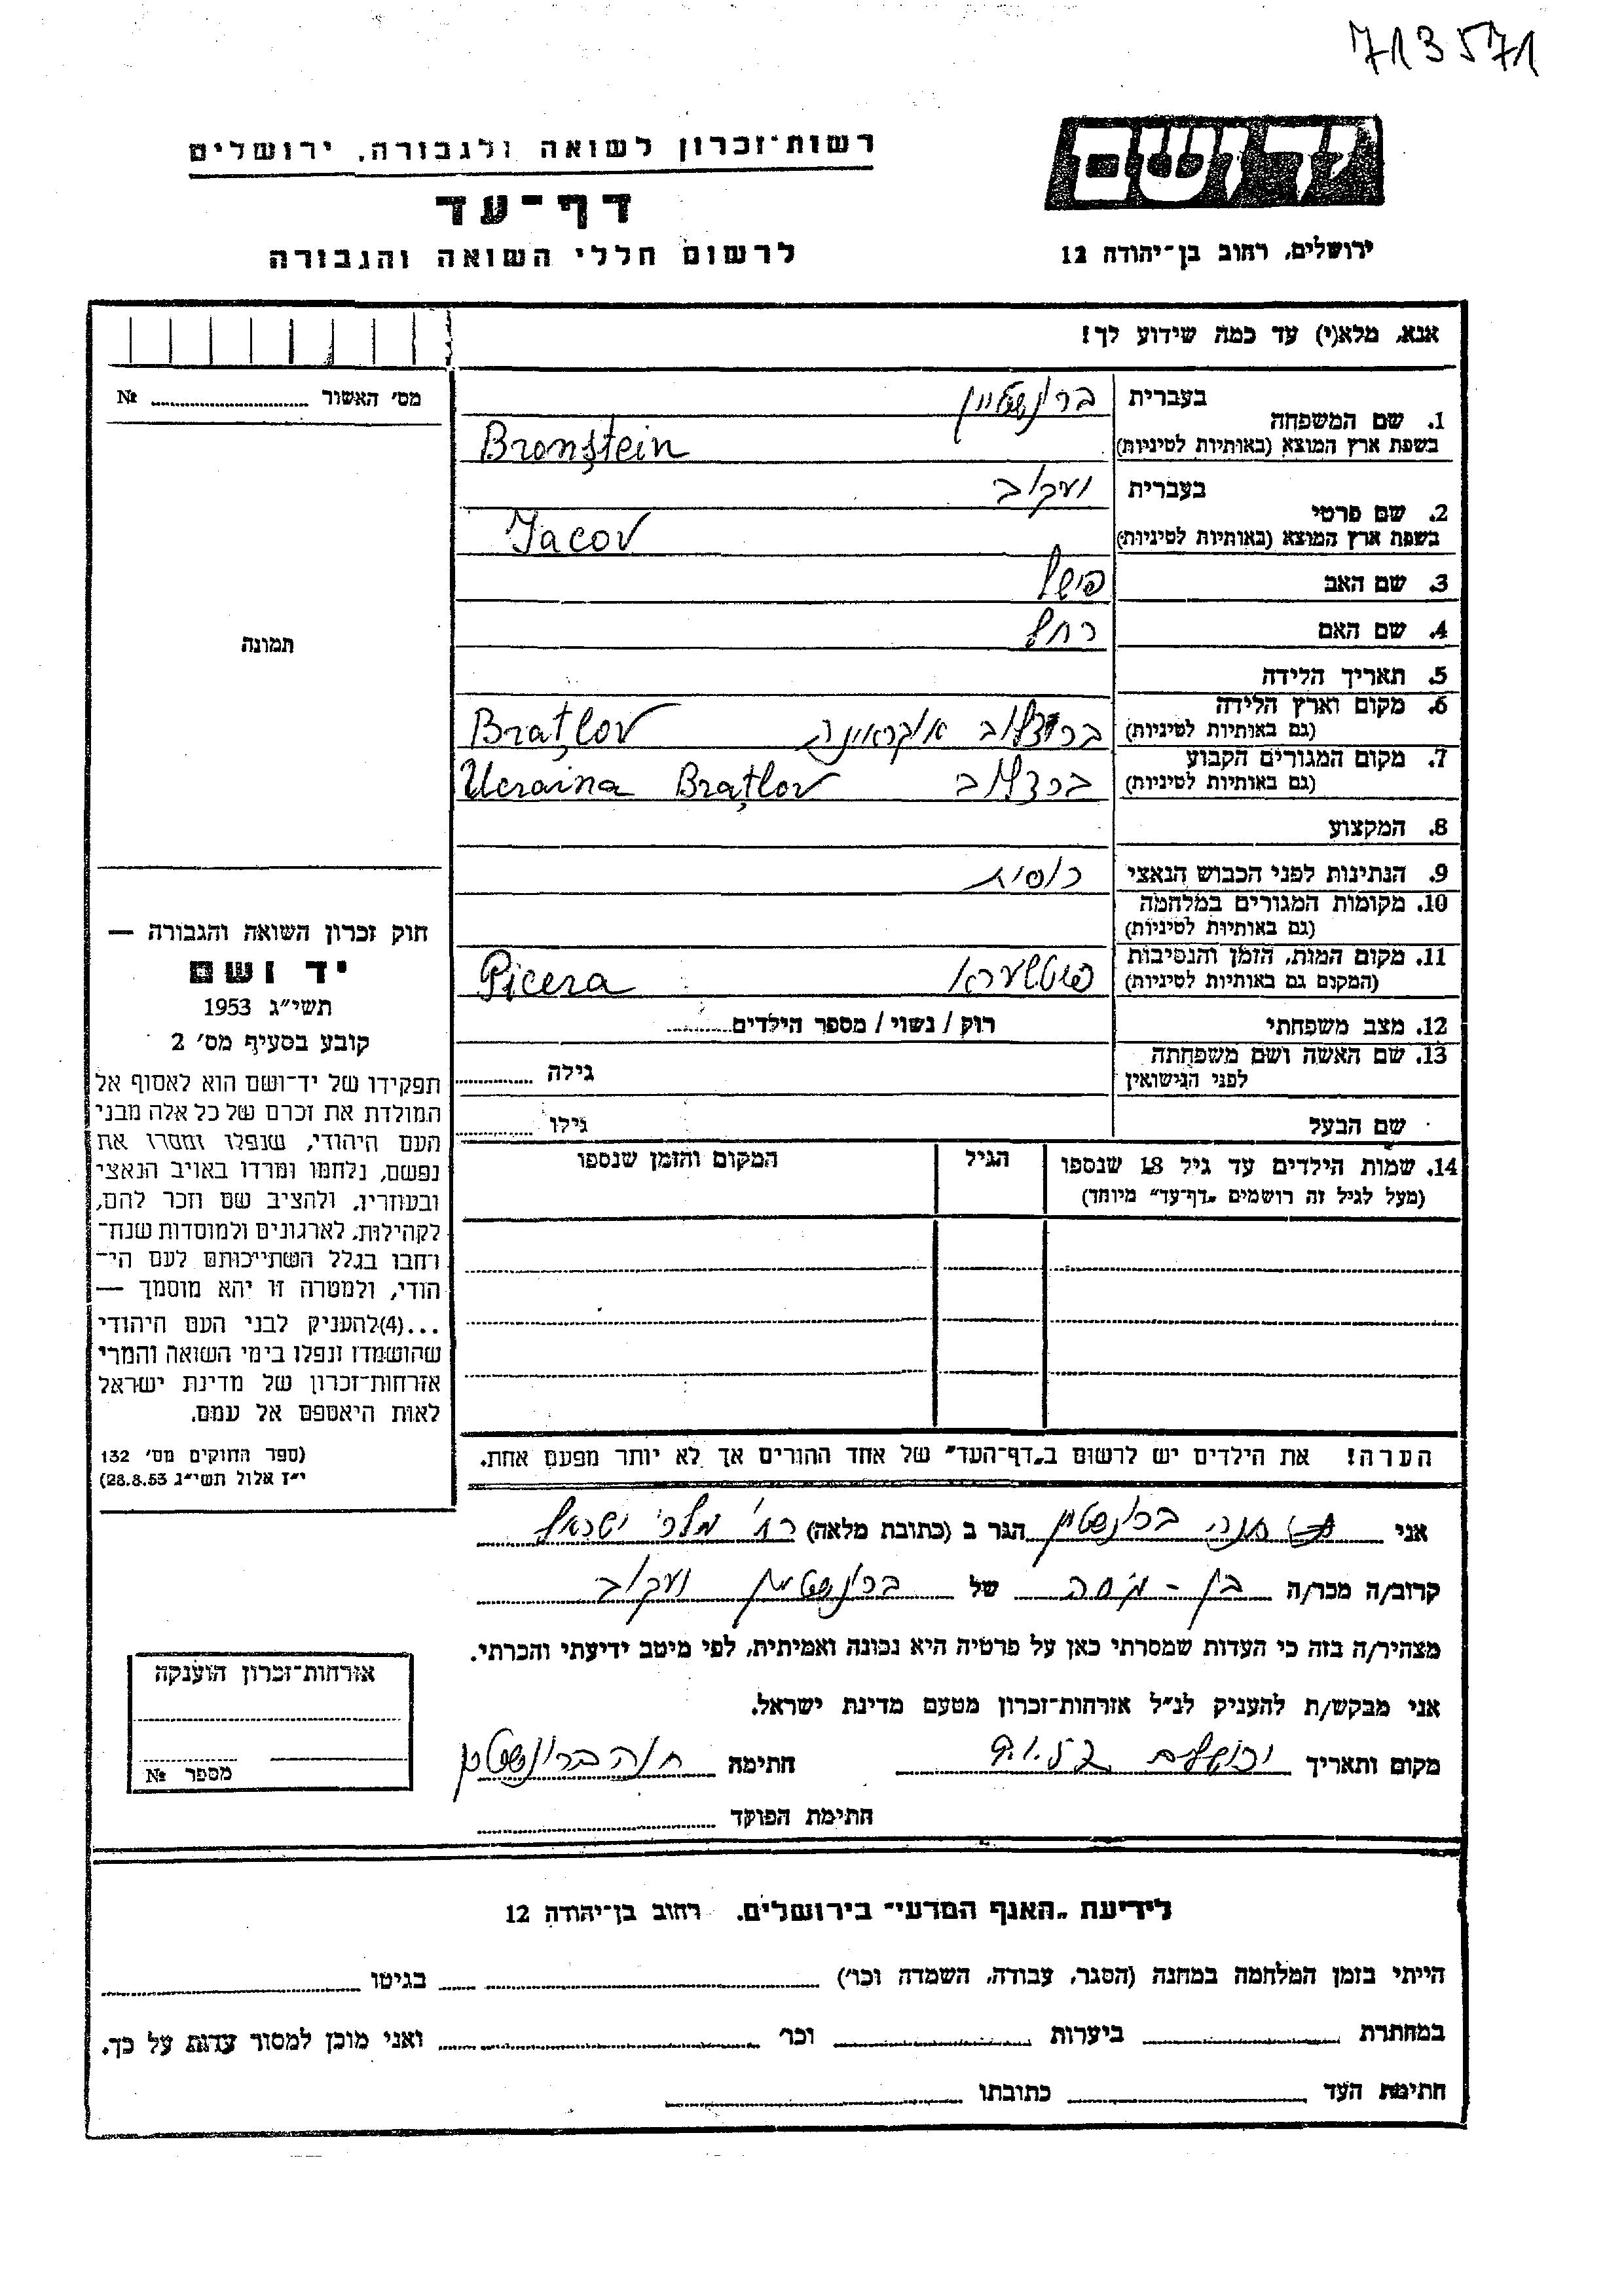 713571
רשות־זכרון לשואה ולגבורה, ירושלים
יד ושם
דף־עד
לרשום חללי השואה והגבורה
ירושלים, רחוב בן־יהודה 12
אנא, מלא(י) עד כמה שידוע לך!
מס׳ האשור № 
1. שם המשפחה בעברית ברונשטיין
בשפת ארץ המוצא (באותיות לטיניות) Bronștein
2. שם פרטי בעברית יעקוב
בשפת ארץ המוצא (באותיות לטיניות) Jacov
3. שם האב פישל
4. שם האם רחל
תמונה
5. תאריך הלידה
6. מקום וארץ הלידה ברצלוב אוקראינה Brațlov
(גם באותיות לטיניות)
7. מקום המגורים הקבוע ברצלוב Ucraina Brațlov
(גם באותיות לטיניות)
8. המקצוע
9. הנתינות לפני הכבוש הנאצי רוסית
10. מקומות המגורים במלחמה
(גם באותיות לטיניות)
11. מקום המות, הזמן והנסיבות פיטשערא Picera
(המקום גם באותיות לטיניות)
12. מצב משפחתי רוק / נשוי / מספר הילדים
13. שם האשה ושם משפחתה
לפני הנישואין גילה
שם הבעל גילו
14. שמות הילדים עד גיל 18 שנספו הגיל המקום והזמן שנספו
(מעל לגיל זה רושמים „דף־עד״ מיוחד)
חוק זכרון השואה והגבורה —
יד ושם
תשי״ג 1953
קובע בסעיף מס׳ 2
תפקידו של יד־ושם הוא לאסוף אל
המולדת את זכרם של כל אלה מבני
העם היהודי, שנפלו ומסרו את
נפשם, נלחמו ומרדו באויב הנאצי
ובעוזריו, ולהציב שם וזכר להם,
לקהילות, לארגונים ולמוסדות שנח־
רחבו בגלל השתייכותם לעם הי־
הודי, ולמטרה זו יהא מוסמך —
...(4)להעניק לבני העם היהודי
שהושמדו ונפלו בימי השואה והמרי
אזרחות־זכרון של מדינת ישראל
לאות היאספם אל עמם.
(ספר החוקים מס׳ 132
י״ז אלול תשי״ג 28.8.53)
הערה! את הילדים יש לרשום ב„דף־העד״ של אחד ההורים אך לא יותר מפעם אחת.
אני חנה ברונשטיין הגר ב (כתובת מלאה) רח׳ מלכי ישראל
קרוב/ה מכר/ה של ברונשטיין יעקוב
מצהיר/ה בזה כי העדות שמסרתי כאן על פרטיה היא נכונה ואמיתית, לפי מיטב ידיעתי והכרתי.
אני מבקש/ת להעניק לנ״ל אזרחות־זכרון מטעם מדינת ישראל.
מקום ותאריך ירושלים חתימה חנה ברונשטיין
חתימת הפוקד
אזרחות־זכרון הוענקה
מספר №
לידיעת „האגף המדעי״ בירושלים. רחוב בן־יהודה 12
הייתי בזמן המלחמה במחנה (הסגר, עבודה, השמדה וכו׳) בגיטו
במחתרת ביערות וכו׳ ואני מוכן למסור עדות על כך.
חתימת העד כתובתו